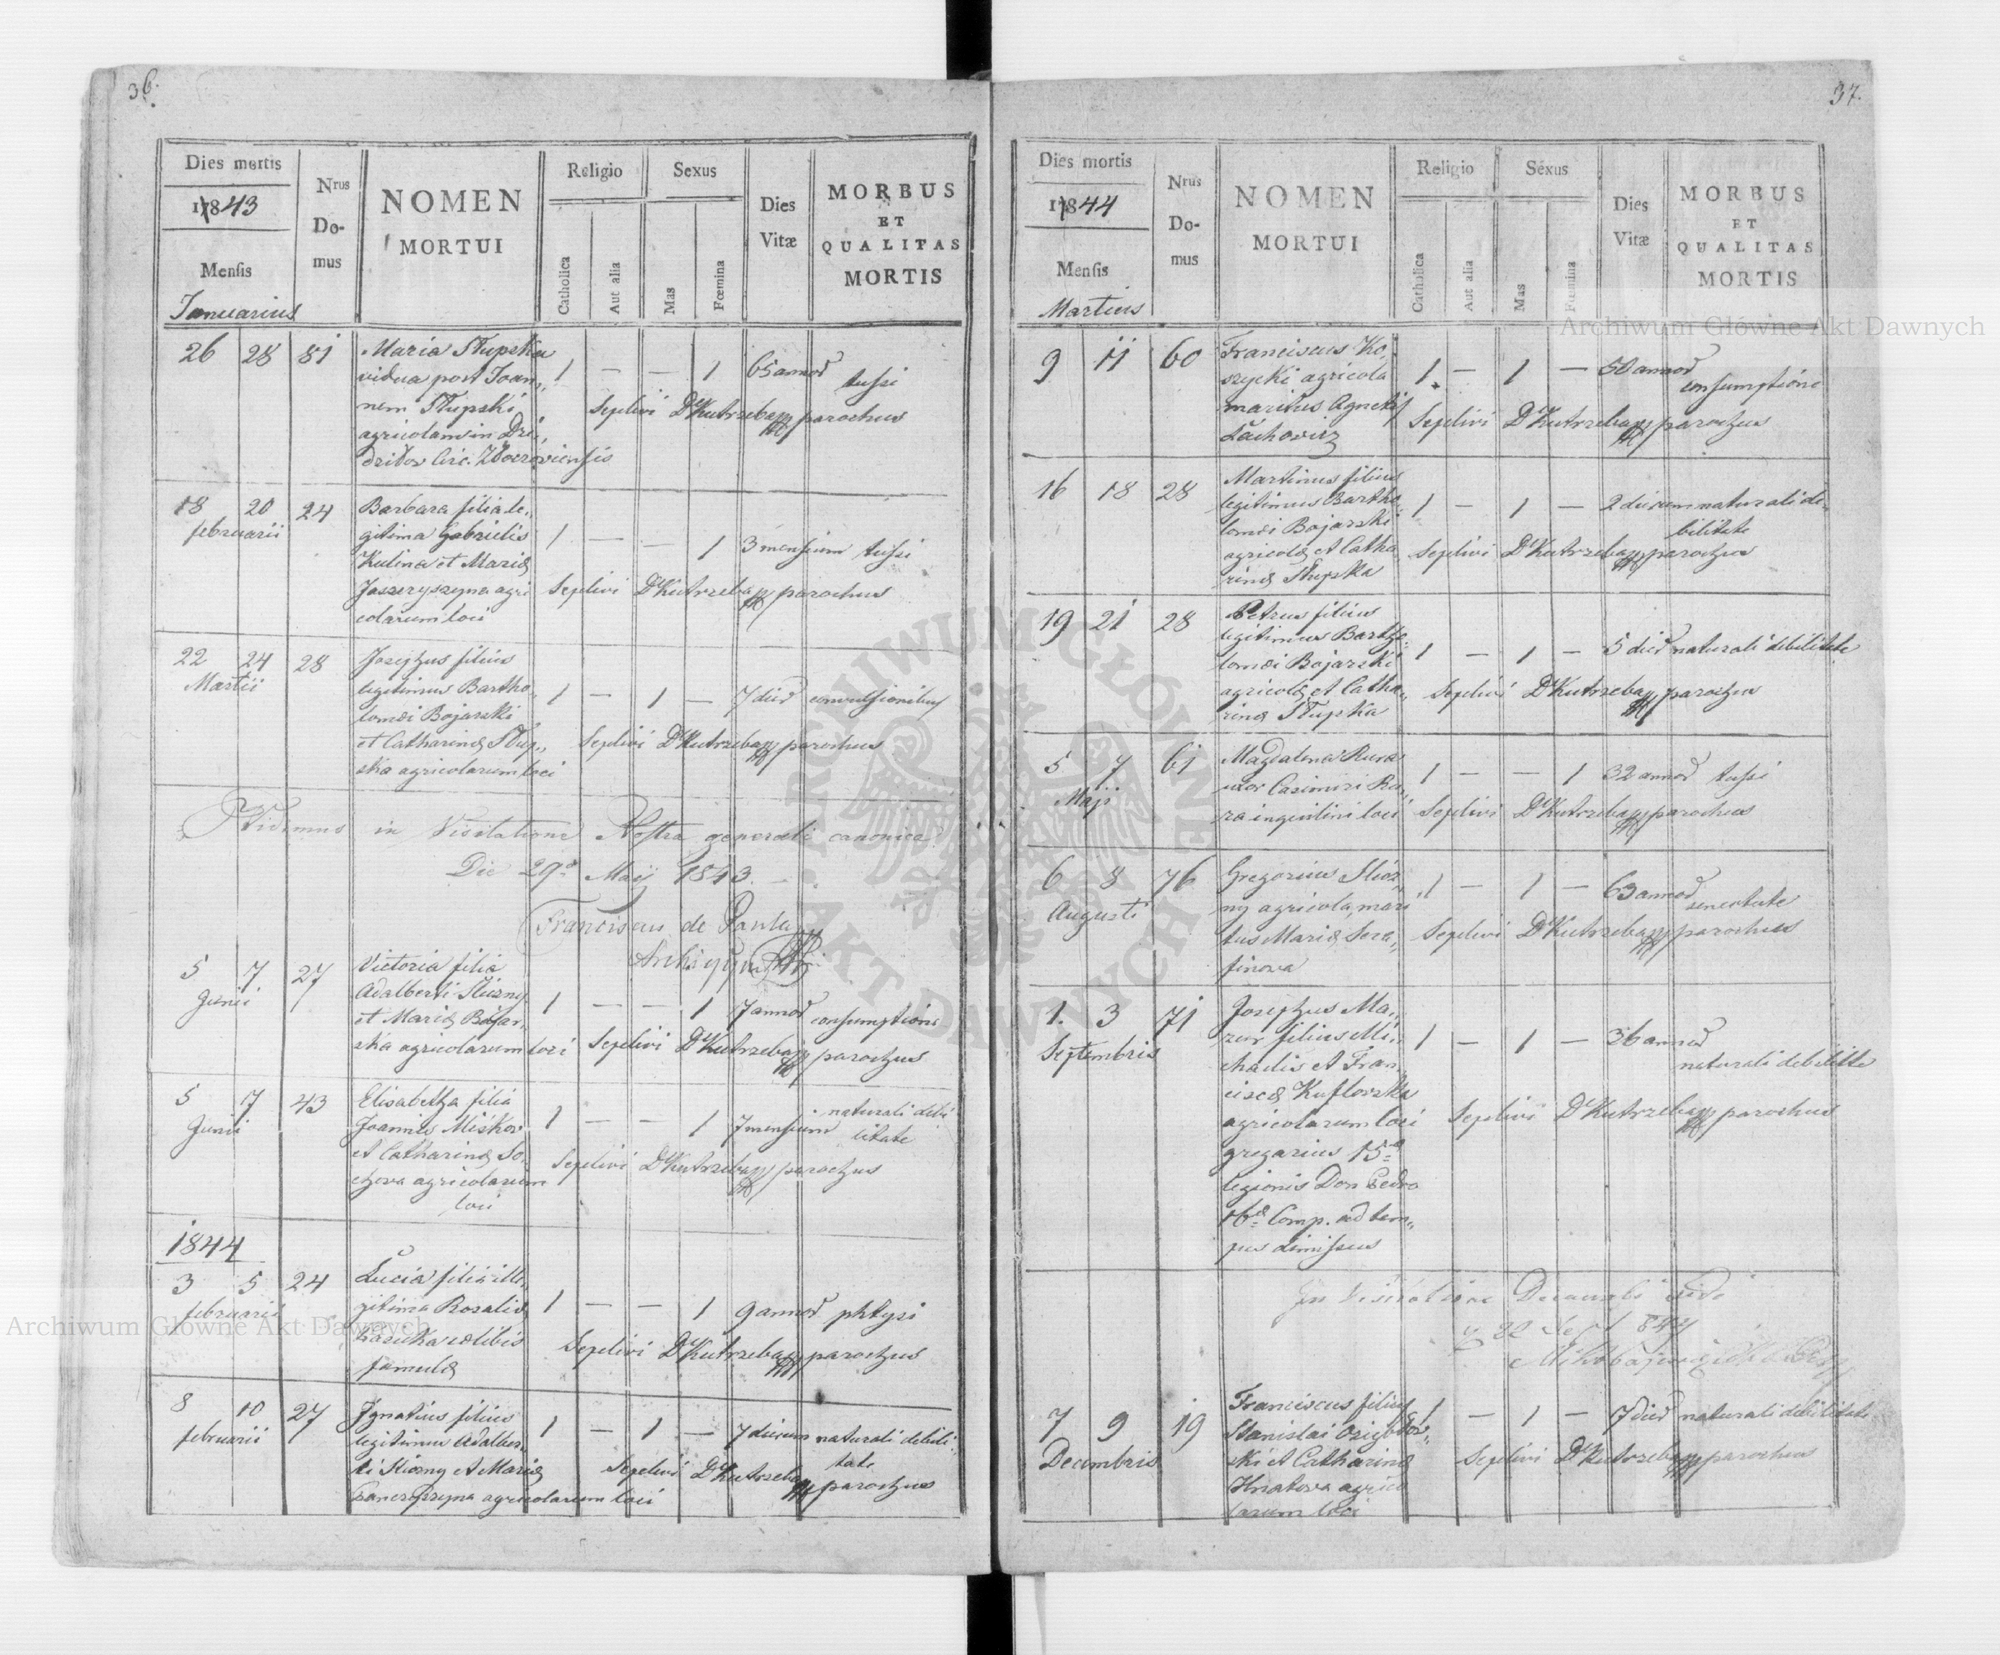 36.
Dies mortis
1843
Mensis
Januarius
Nrus
Do-
mus
NOMEN
MORTUI
Religio
Catholica
Aut alia
Sexus
Mas
Fœmina
Dies
Vitæ
MORBUS
ET
QUALITAS
MORTIS
26 28 81 Maria Słupska
vidua post Joan„
nem Słupski
agricolam in
Circ. Złoczoviensis
1 — — 1 65 annos tussi
Sepelivi Dus Kutrzeba mp parochus
18 20 24
februarii
Barbara filia le„
gitima Gabrielis
Kulina et Mariæ
agri
colarum loci
1 — — 1 3 mensium tussi
Sepelivi Dus Kutrzeba mp parochus
22 24 28
Martii
Josephus filius
legitimus Bartho„
lomæi Bojarski
et Catharinæ Słup„
ska agricolarum loci
1 — 1 — 7 dies convulsionibus
Sepelivi Dus Kutrzeba mp parochus
Vidimus in Visitatione Nostra generali canonica
Die 29a Maij 1843.
Franciscus de Paula
Archi
5 7 27
Junii
Victoria filia
Adalberti Sliczny
et Mariæ Bojar„
ska agricolarum loci
1 — — 1 7 annos consumptione
Sepelivi Dus Kutrzeba mp parochus
5 7 43
Junii
Elisabetha filia
Joannis Miśków
et Catharinæ
agricolarum
loci
1 — — 1 7 mensium naturali debi
litate
Sepelivi Dus Kutrzeba mp parochus
1844
3 5 24
februarii
Lucia filia ille„
gitima Rosaliæ
cœlibis
famulæ
1 — — 1 9 annos phtysi
Sepelivi Dus Kutrzeba mp parochus
8 10 27
februarii
Ignatius filius
legitimus Adalber„
ti Sliczny et Mariæ
agricolarum loci
1 — 1 — 7 dierum naturali debili
tate
Sepelivi Dus Kutrzeba mp parochus
37.
Dies mortis
1844
Mensis
Martius
Nrus
Do-
mus
NOMEN
MORTUI
Religio
Catholica
Aut alia
Sexus
Mas
Fœmina
Dies
Vitæ
MORBUS
ET
QUALITAS
MORTIS
9 11 60 Franciscus Ko„
szycki agricola
maritus Agnetis
Lachowicz
1 — 1 — 50 annos
consumptione
Sepelivi Dus Kutrzeba mp parochus
16 18 28 Martinus filius
legitimus Bartho„
lomæi Bojarski
agricolæ et Catha„
rinæ Słupska
1 — 1 — 2 dierum naturali de„
bilitate
Sepelivi Dus Kutrzeba mp parochus
19 21 28 Petrus filius
legitimus Bartho„
lomæi Bojarski
agricolæ et Catha„
rinæ Słupska
1 — 1 — 5 dies naturali debilitate
Sepelivi Dus Kutrzeba mp parochus
5 7 61
Maji
Magdalena Kura
uxor Casimiri Ku„
ra inquilini loci
1 — — 1 32 annos tussi
Sepelivi Dus Kutrzeba mp parochus
6 8 76
Augusti
Gregorius Slicz„
ny agricola, mari
tus Mariæ Sera„
finova
1 — 1 — 63 annos
senectute
Sepelivi Dus Kutrzeba mp parochus
1. 3 71
Septembris
Josephus Ma„
zur filius Mi„
chaelis et Fran„
ciscæ
agricolarum loci
gregarius 15æ
legionis Don Pedro
16æ Comp. ad tem„
pus dimissus
1 — 1 — 26 annos
naturali debilitate
Sepelivi Dus Kutrzeba mp parochus
In Visitatione Decanali vidi
22
7 9 19
Decembris
Franciscus filius
Stanislai
ski et Catharinæ
Hnatowa agrico
larum loci
1 — 1 — 7 dies naturali debilitate
Sepelivi Dus Kutrzeba mp parochus
Archiwum Główne Akt Dawnych
Archiwum Główne Akt Dawnych
ARCHIWUM GŁÓWNE AKT DAWNYCH